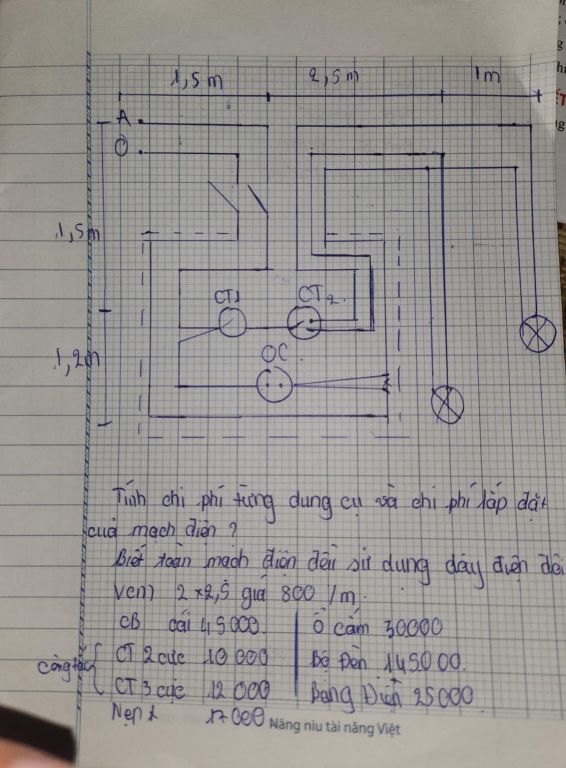 1,5m 2,5m 1m
A
O
1,5m
CT1 CT2
OC
1,2m
Tính chi phí từng dụng cụ và chi phí lắp đặt
của mạch điện ?
Biết toàn mạch điện đều sử dụng dây điện đôi
Vcm 2 x 2,5 giá 800 / m.
CB cái 45000. Ổ cắm 30000
công tắc CT 2 cực 10 000 Bộ Đèn 145000.
CT 3 cực 12 000 Bảng Điện 25000.
Nẹp 17000
Nâng niu tài năng Việt